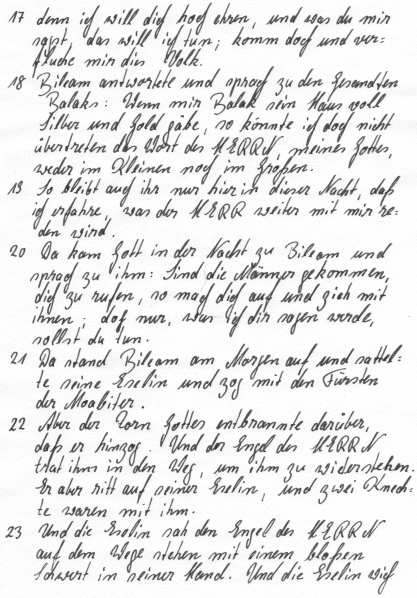 17 denn ich will dich hoch ehren, und was du mir
sagst, das will ich tun; komm doch und ver-
fluche mir dies Volk.
18 Bileam antwortete und sprach zu den Gesandten
Balaks: Wenn mir Balak sein Haus voll
Silber und Gold gäbe, so könnte ich doch nicht
übertreten das Wort des HERRN, meines Gottes,
weder im Kleinen noch im Großen.
19 So bleibt auch ihr nur hier in dieser Nacht, daß
ich erfahre, was der HERR weiter mit mir re-
den wird.
20 Da kam Gott in der Nacht zu Bileam und
sprach zu ihm: Sind die Männer gekommen,
dich zu rufen, so mach dich auf und zieh mit
ihnen; doch nur, was ich dir sagen werde,
sollst du tun.
21 Da stand Bileam am Morgen auf und sattel-
te seine Eselin und zog mit den Fürsten
der Moabiter.
22 Aber der Zorn Gottes entbrannte darüber,
daß er hinzog. Und der Engel des HERRN
trat ihm in den Weg, um ihm zu widerstehen.
Er aber ritt auf seiner Eselin, und zwei Knech-
te waren mit ihm.
23 Und die Eselin sah den Engel des HERRN
auf dem Wege stehen mit einem bloßen
Schwert in seiner Hand. Und die Eselin wich